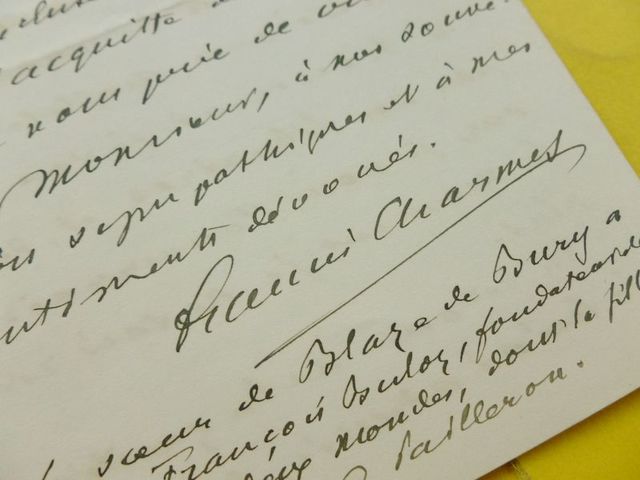 acquitte
vous prie de
Monsieur, à nos souve
sympathiques et à mes
sentiments dévoués.
Francis Charmes
sœur de Blaze de Bury a
François Buloz, fondateur de
deux mondes, dont la fill
Pailleron.